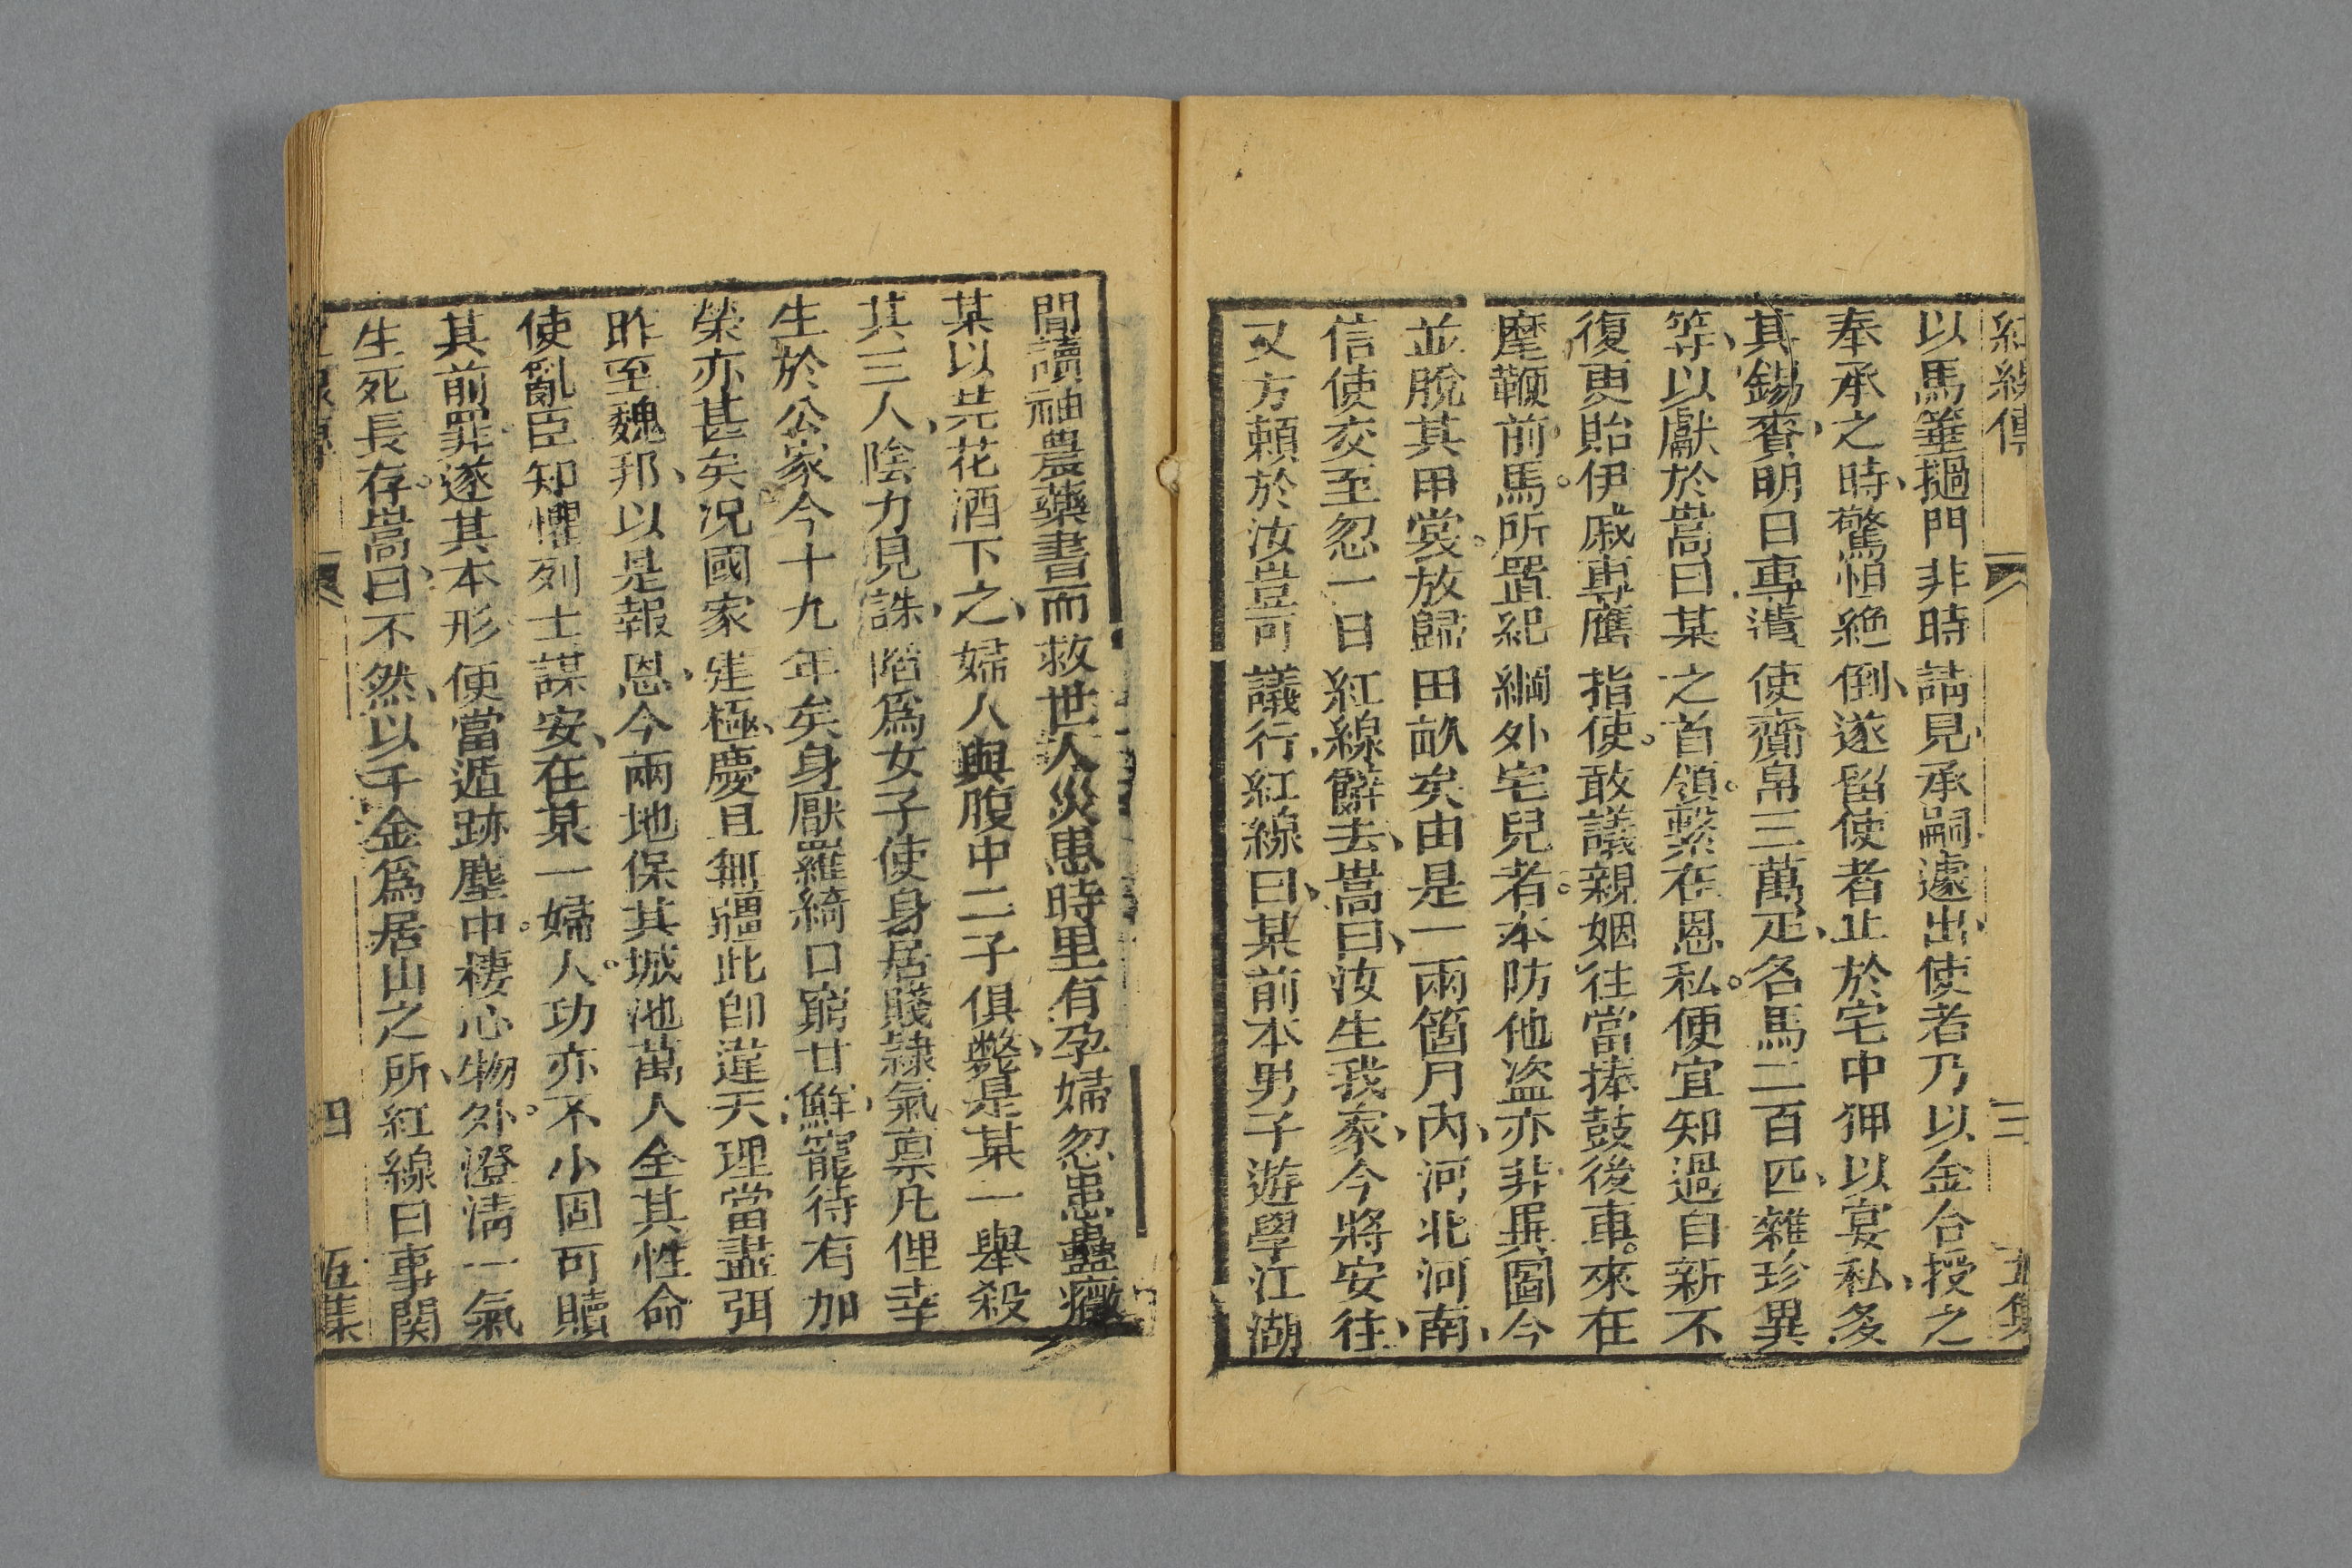 紅線傳 三 五集
以馬箠撾門非時請見承嗣遽出使者乃以金合授之
奉承之時驚怛絕倒遂留使者止於宅中狎以宴私多
其錫賚明日專遣使齎帛三萬疋名馬二百匹雜珍異
等以獻於嵩曰某之首領繫在恩私便宜知過自新不
復更貽伊戚專膺指使敢議親姻往當捧鼓後車來在
麾鞭前馬所置紀綱外宅兒者本防他盜亦非異圖今
並脫其甲裳放歸田畝矣由是一兩箇月內河北河南
信使交至忽一日紅線辭去嵩曰汝生我家今將安往
又方頼於汝豈可議行紅線曰某前本男子遊學江湖
間讀神農藥書而救世人災患時里有孕婦忽患蠱癥
某以芫花酒下之婦人與腹中二子俱斃是某一舉殺
其三人陰力見誅陷爲女子使身居賤隷氣禀凡俚幸
生於公家今十九年矣身厭羅綺口窮甘鮮寵待有加
榮亦甚矣况國家建極慶且無疆此即違天理當盡弭
昨至魏邦以是報恩今兩地保其城池萬人全其性命
使亂臣知懼列士謀安在某一婦人功亦不小固可贖
其前罪遂其本形便當遁跡塵中棲心物外澄清一氣
生死長存嵩曰不然以千金爲居山之所紅線曰事関
四 五集